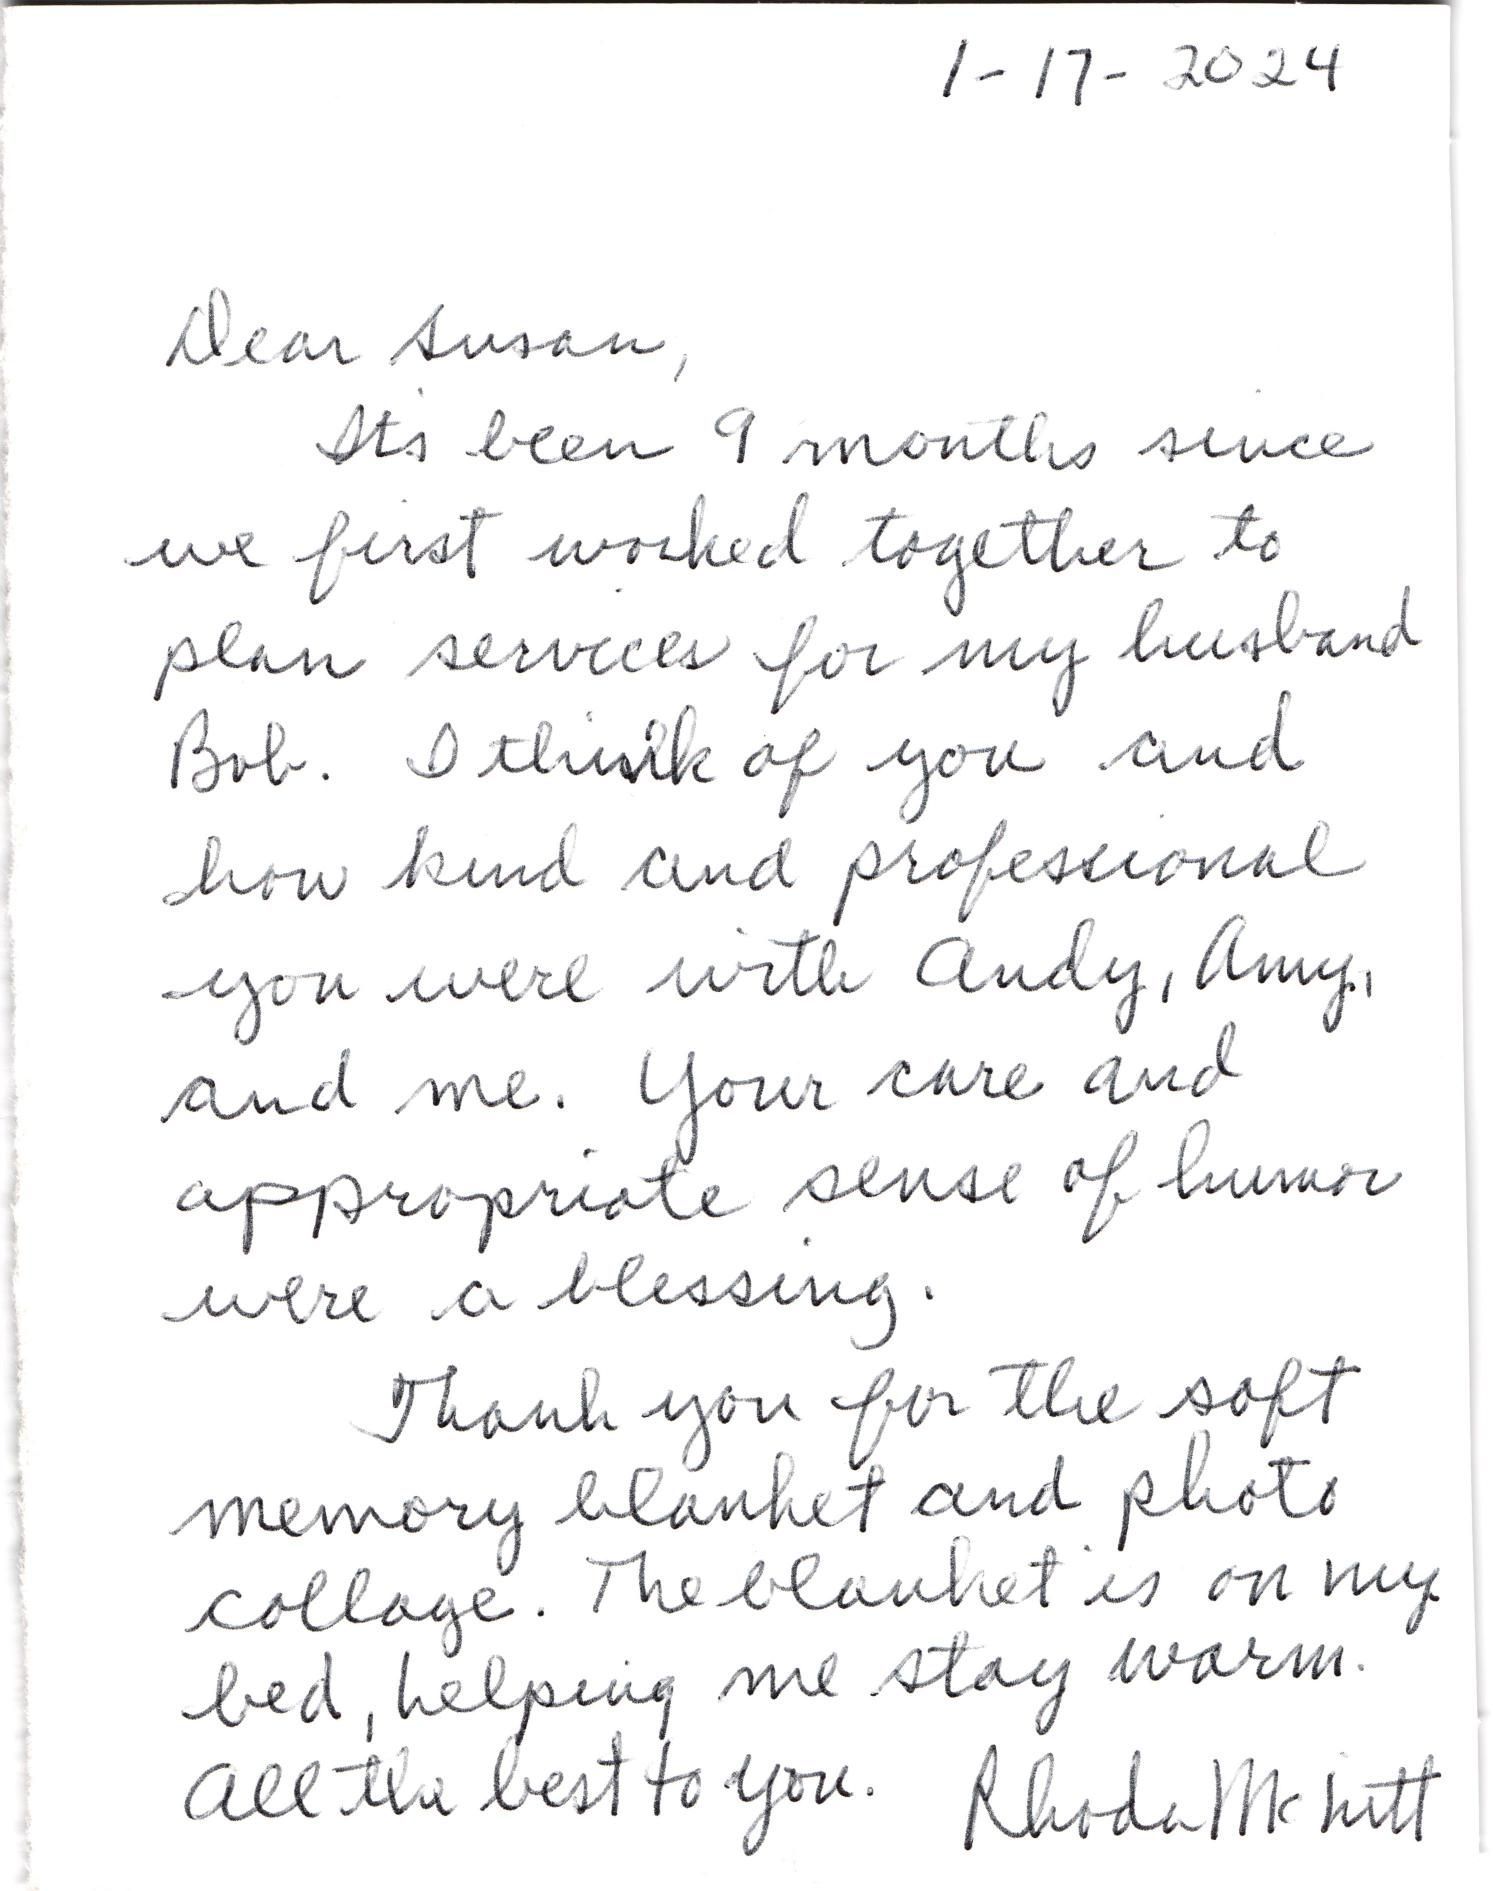 1-17-2024
Dear Susan,
Its been 9 months since
we first worked together to
plan services for my husband
Bob. I think of you and
how kind and professional
you were with Andy, Amy,
and me. Your care and
appropriate sense of humor
were a blessing.
Thank you for the soft
memory blanket and photo
collage. The blanket is on my
bed, helping me stay warm.
All the best to you. Rhoda McNitt